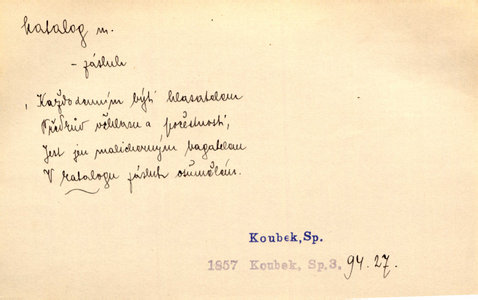 katalog m.
- zásluh
Každodenním býti hlasatelem
Předkův věhlasu a počestností,
Jest jen malicherným bagatelem
V katalogu zásluh osumělém.
Koubek, Sp.
1857 Koubek, Sp. 3. 94. 27.